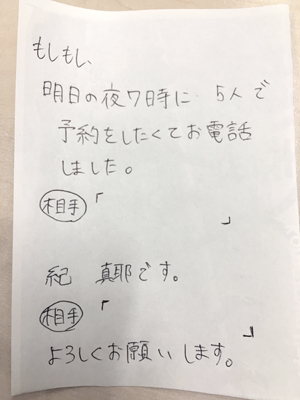 もしもし、
明日の夜7時に 5人で
予約をしたくてお電話
しました。
相手「
」
紀 真耶です。
相手「
」
よろしくお願いします。